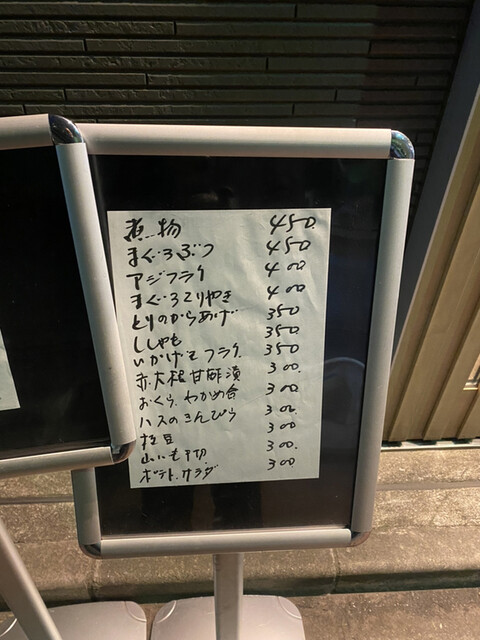 煮物 450
まぐろぶつ 450
アジフライ 400
まぐろてりやき 400
とりのからあげ 350
ししゃも 350
いかげそフライ 350
赤大根甘酢漬 300
おくらわかめ合 300
ハスのきんぴら 300
枝豆 300
山いも千切 300
ポテト.サラダ 300